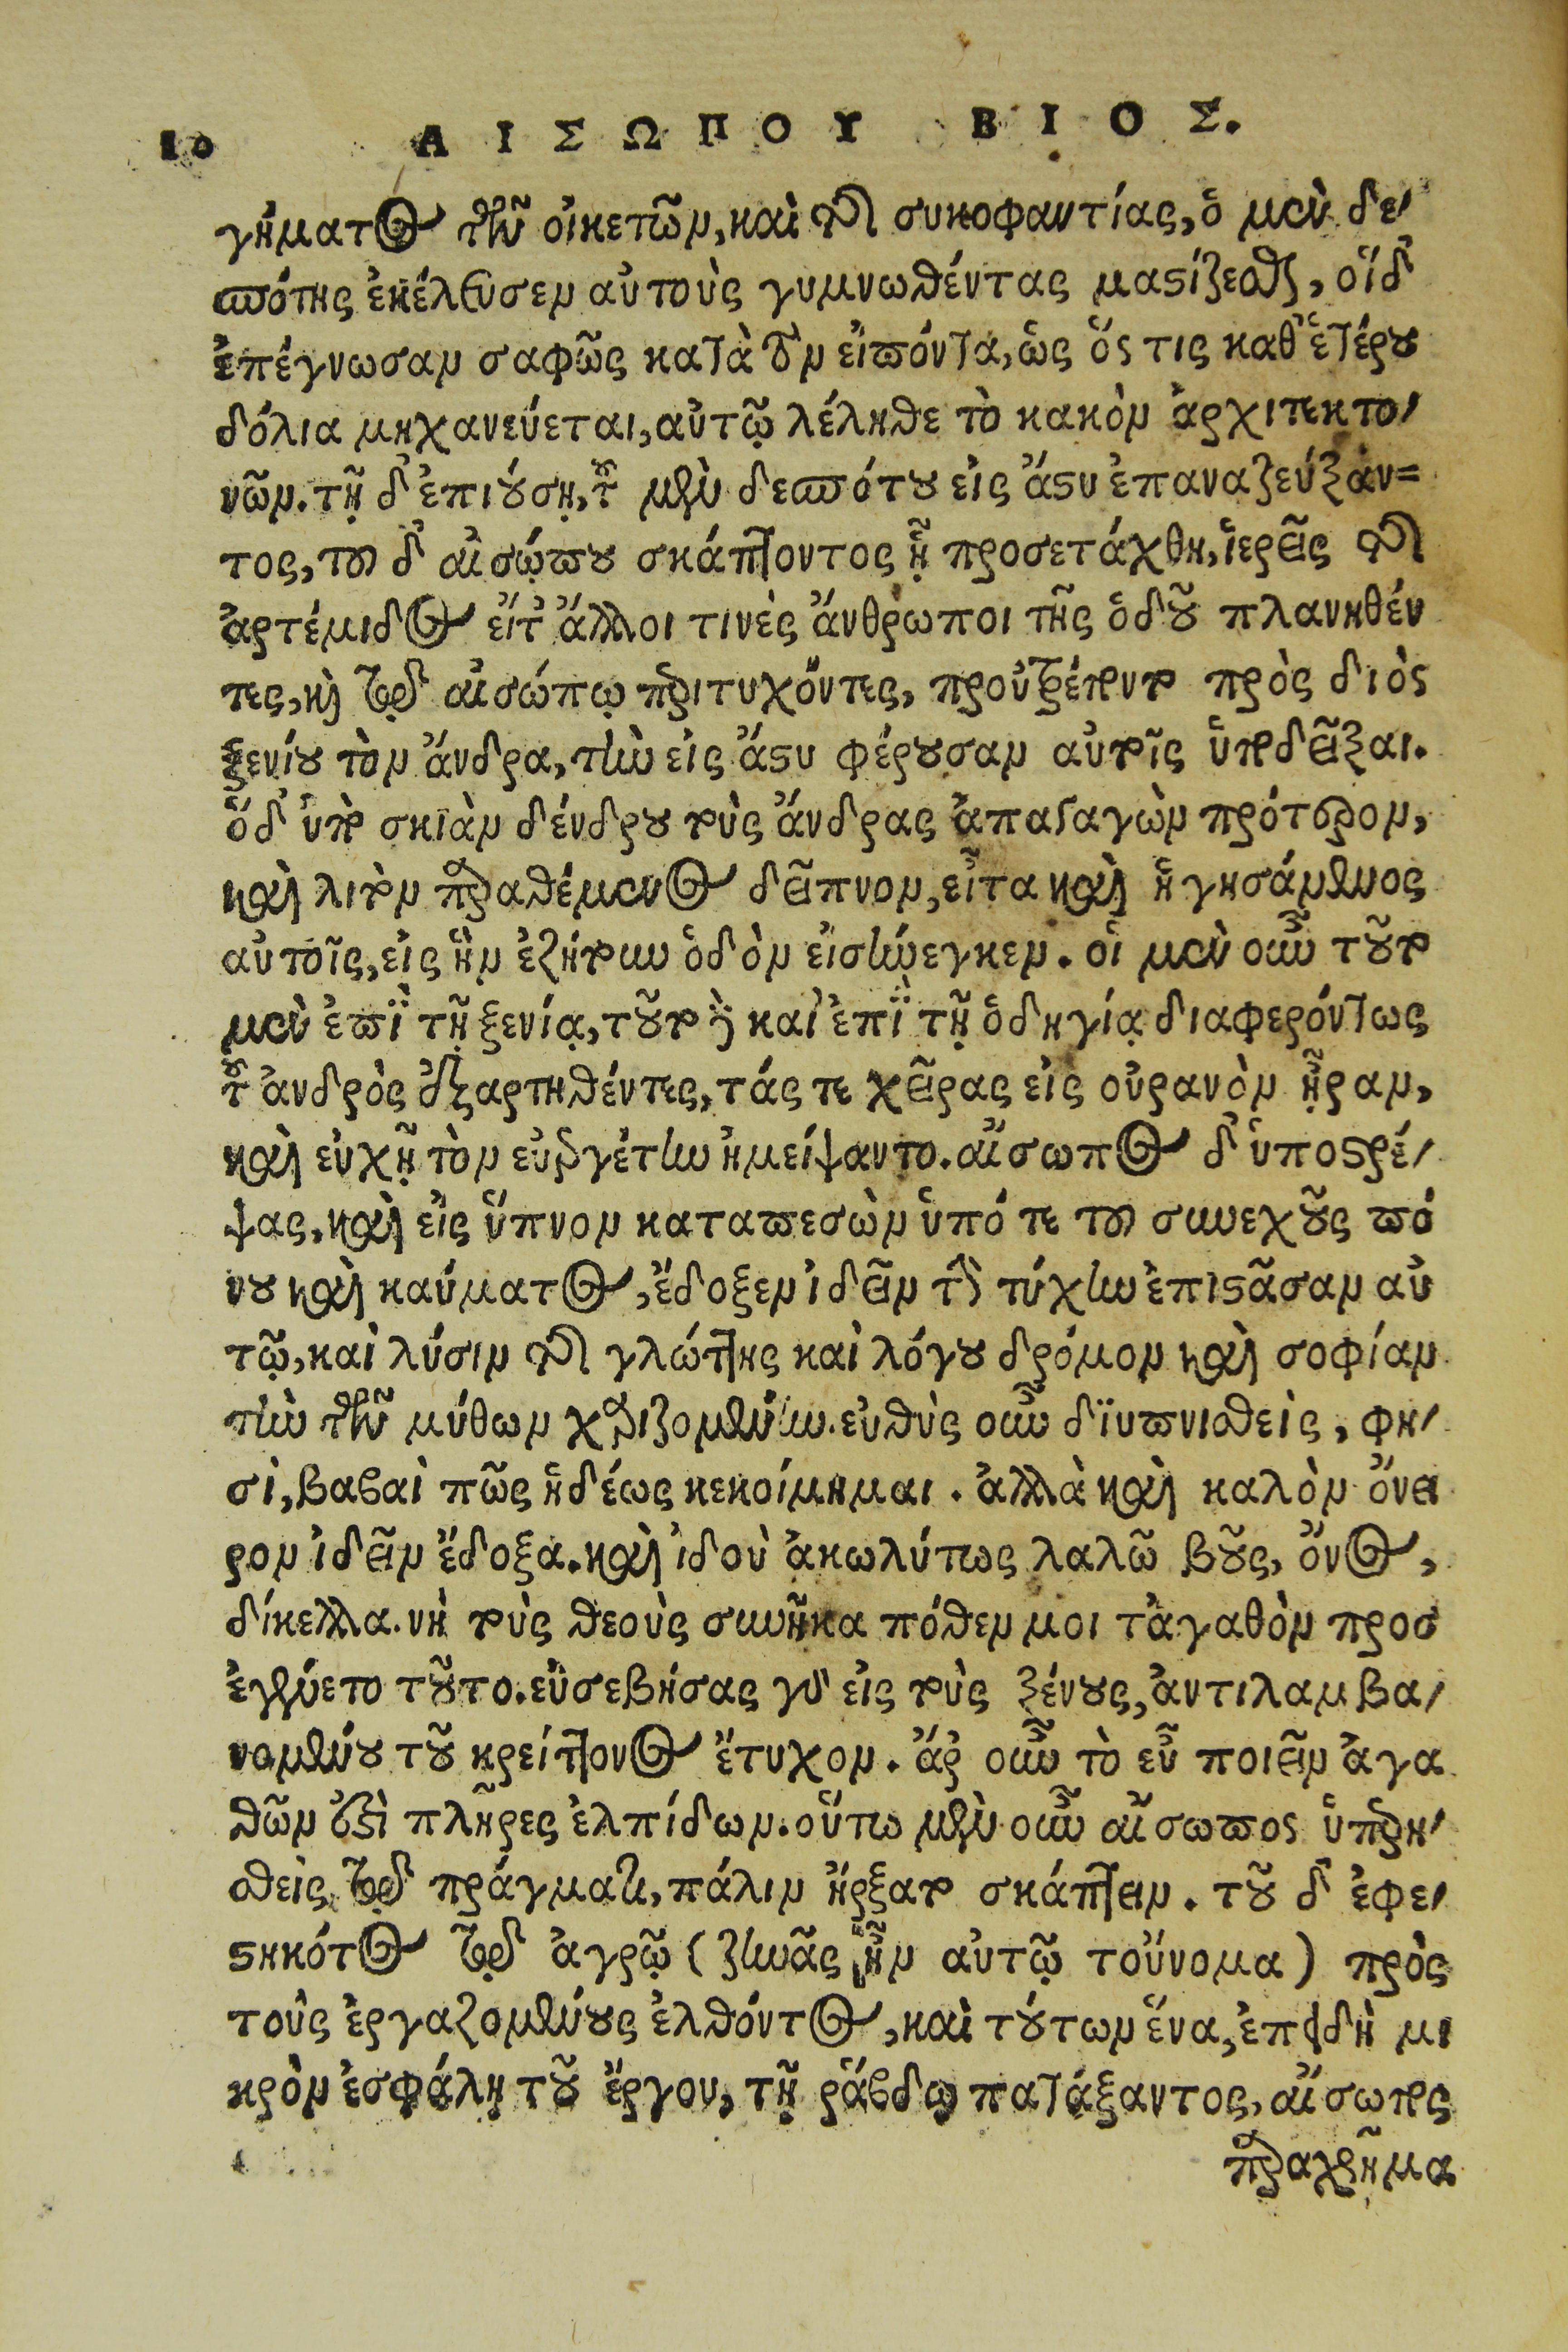 10 ΑΙΣΩΠΟΥ ΒΙΟΣ.
γήματος τῶν οἰκετῶν, καὶ τῆς συκοφαντίας, ὁ μὲν δε-
σπότης ἐκέλευσεν αὐτοὺς γυμνωθέντας μαστίζεσθαι, οἵδ᾽
ἐπέγνωσαν σαφῶς κατὰ τὸν εἰπόντα, ὡς ὅς τις καθ᾽ ἑτέρου
δόλια μηχανεύεται, αὐτῷ λέληθε τὸ κακὸν ἀρχιτεκτο-
νῶν. τῇ δ᾽ ἐπιούσῃ, τοῦ μὲν δεσπότου εἰς ἄστυ ἐπαναζεύξαν=
τος, τοῦ δ᾽ αἰσώπου σκάπτοντος ᾗ προσετάχθη, ἱερεῖς τῆς
ἀρτέμιδος εἴτ᾽ ἄλλοι τινὲς ἄνθρωποι τῆς ὁδοῦ πλανηθέν
τες, καὶ τῷδ᾽ αἰσώπῳ περιτυχόντες, προὔτρέποντο πρὸς διὸς
ξενίου τὸν ἄνδρα, τὴν εἰς ἄστυ φέρουσαν αὐτοῖς ὑποδεῖξαι.
ὅδ᾽ ὑπὸ σκιὰν δένδρου τοὺς ἄνδρας ἀπαγαγὼν πρότερον,
καὶ λιτὸν παραθέμενος δεῖπνον, εἶτα καὶ ἡγησάμενος
αὐτοῖς, εἰς ἣν ἐζήτουν ὁδὸν εἰσήνεγκεν. οἱ μὲν οὖν τοῦτο
μὲν ἐπὶ τῇ ξενίᾳ, τοῦτο δὲ καὶ ἐπὶ τῇ ὁδηγίᾳ διαφερόντως
τοῦ ἀνδρὸς ἐξαρτηθέντες, τάς τε χεῖρας εἰς οὐρανὸν ἦραν,
καὶ εὐχῇ τὸν εὐεργέτην ἠμείψαντο. αἴσωπος δ᾽ ὑποστρέ-
ψας, καὶ εἰς ὕπνον καταπεσὼν ὑπό τε τοῦ συνεχοῦς πό
νου καὶ καύματος, ἔδοξεν ἰδεῖν τὴν τύχην ἐπιστᾶσαν αὐ
τῷ, καὶ λύσιν τῆς γλώττης καὶ λόγου δρόμον καὶ σοφίαν
τὴν τῶν μύθων χαριζομένην. εὐθὺς οὖν διϋπνισθεὶς, φη-
σὶ, βαβαὶ πῶς ἡδέως κεκοίμημαι. ἀλλὰ καὶ καλὸν ὄνει
ρον ἰδεῖν ἔδοξα. καὶ ἰδοὺ ἀκωλύτως λαλῶ βοῦς, ὄνος,
δίκελλα. νὴ τοὺς θεοὺς συνῆκα πόθεν μοι τἀγαθὸν προσ
ἐγένετο τοῦτο. εὐσεβήσας γὰρ εἰς τοὺς ξένους, ἀντιλαμβα-
νομένου τοῦ κρείττονος ἔτυχον. ἄρ᾽ οὖν τὸ εὖ ποιεῖν ἀγα
θῶν ἐστὶ πλῆρες ἐλπίδων. οὕτω μὲν οὖν αἴσωπος ὑπερη-
σθεὶς τῷδ᾽ πράγματι, πάλιν ἤρξατο σκάπτειν. τοῦ δ᾽ ἐφε-
στηκότος τῷδ᾽ ἀγρῷ (ζηνᾶς ἦν αὐτῷ τοὔνομα) πρὸς
τοὺς ἐργαζομένους ἐλθόντος, καὶ τούτων ἕνα, ἐπειδὴ μι
κρὸν ἐσφάλη τοῦ ἔργου, τῇ ῥάβδῳ πατάξαντος, αἴσωπος
παραχρῆμα